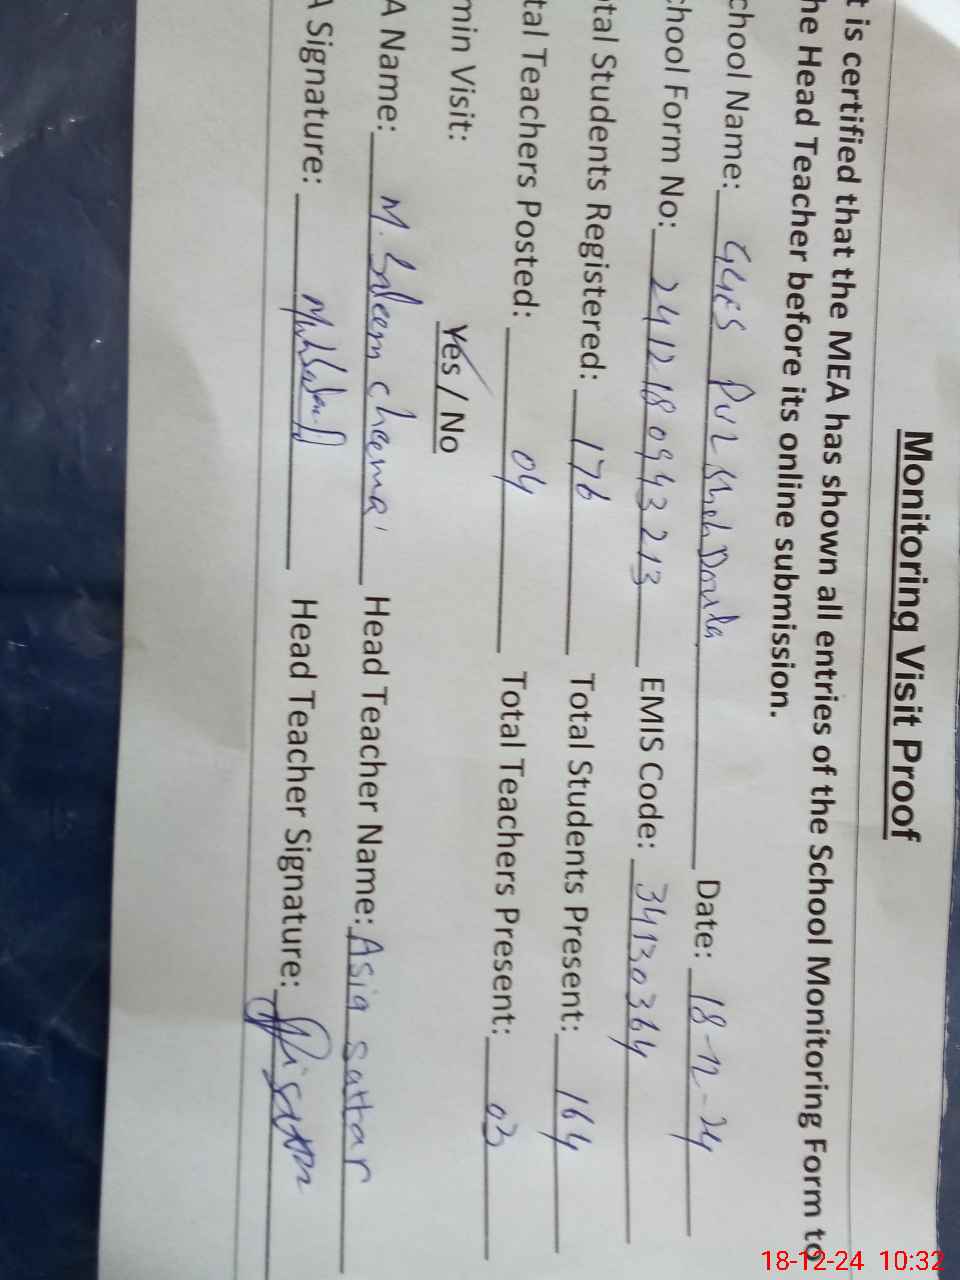 Monitoring Visit Proof
t is certified that the MEA has shown all entries of the School Monitoring Form to
he Head Teacher before its online submission.
chool Name: GGES Pul Shah Doula Date: 18-12-24
chool Form No: 2412180943213 EMIS Code: 34130364
tal Students Registered: 176 Total Students Present: 164
tal Teachers Posted: 04 Total Teachers Present: 03
min Visit: Yes / No
A Name: M. Saleem cheema Head Teacher Name: Asia Sattar
A Signature: Head Teacher Signature:
18-12-24 10:32